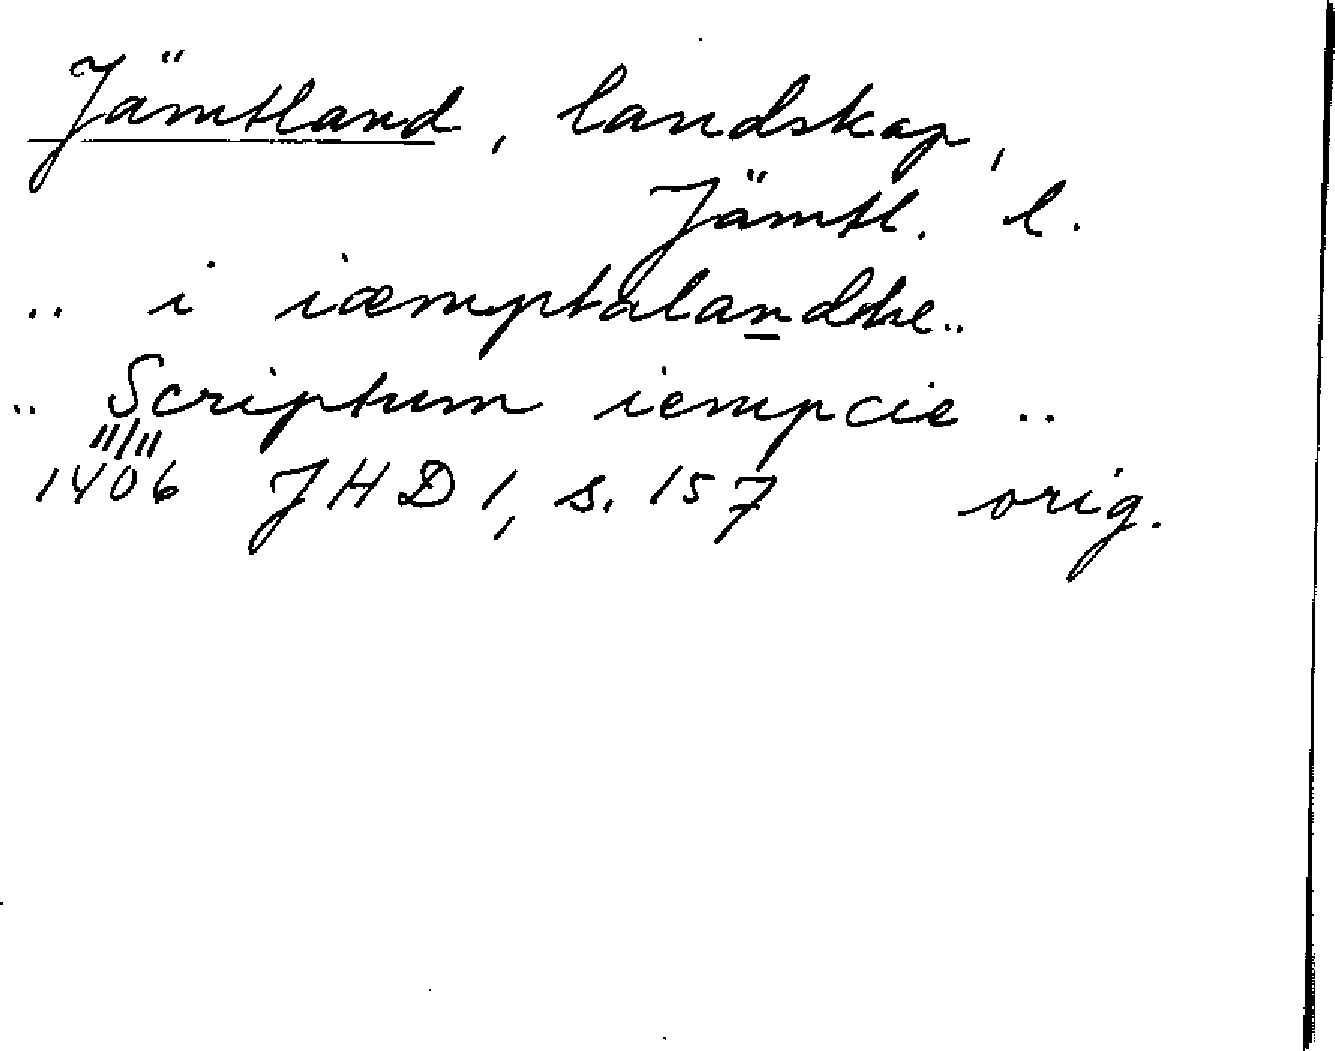 Jämtland, landskap,
Jämtl. l.
.. i iæmptalandhe..
.. Scriptum iempcie ..
11/11
1406 JHD 1, s. 157 orig.